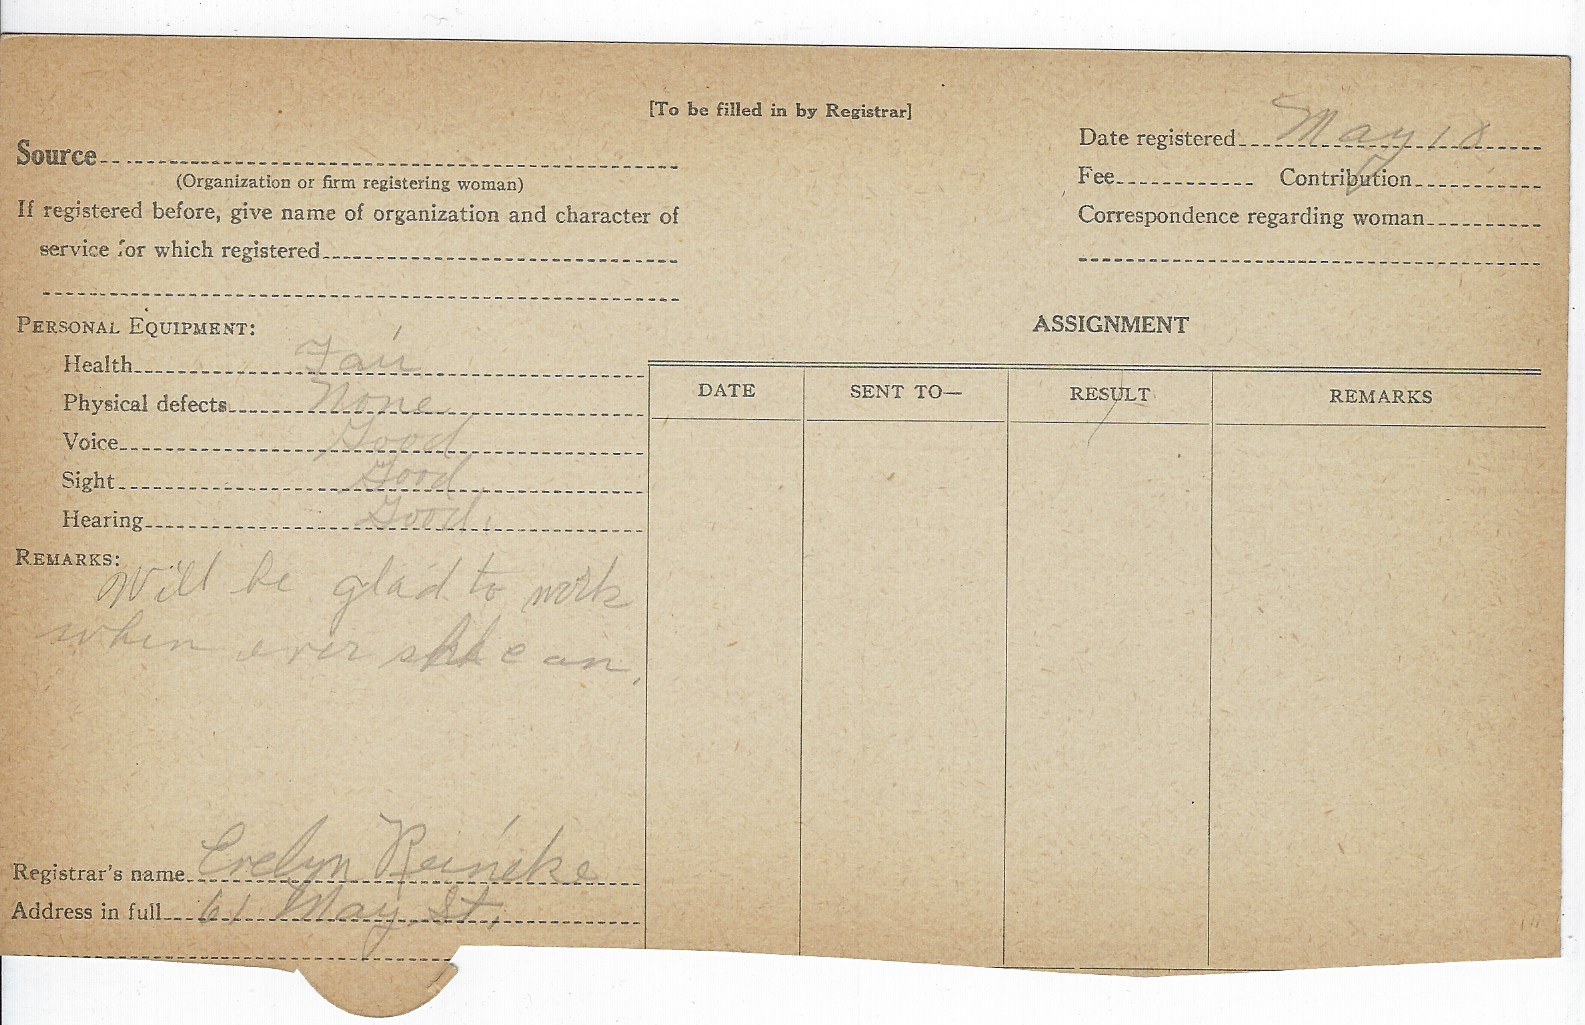 [To be filled in by Registrar]
Source
(Organization or firm registering woman)
If registered before, give name of organization and character of
service for which registered
Date registered May 18
Fee Contribution
Correspondence regarding woman
PERSONAL EQUIPMENT:
Health Fair
Physical defects None
Voice Good
Sight Good
Hearing Good
REMARKS:
Will be glad to work
when ever she can.
Registrar's name Evelyn Reineke
Address in full 61 May St.
ASSIGNMENT
DATE SENT TO— RESULT REMARKS